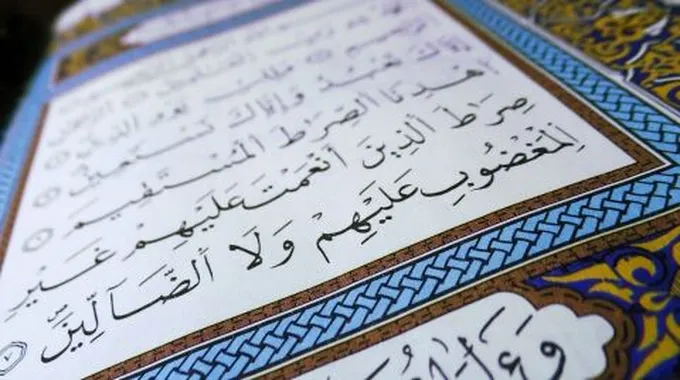 مَلِكِ يَوْمِ الدِّينِ
إِيَّاكَ نَعْبُدُ وَإِيَّاكَ نَسْتَعِينُ
ٱهْدِنَا ٱلصِّرَاطَ ٱلْمُسْتَقِيمَ
صِرَاطَ ٱلَّذِينَ أَنْعَمْتَ عَلَيْهِمْ غَيْرِ
ٱلْمَغْضُوبِ عَلَيْهِمْ وَلَا ٱلضَّآلِّينَ ٧